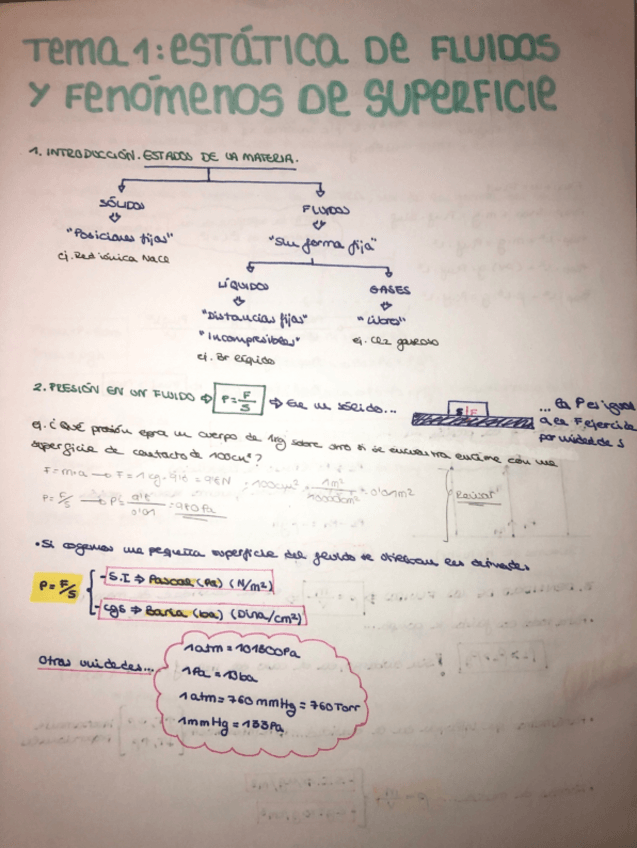 Tema 1: ESTÁTICA DE FLUIDOS
Y FENÓMENOS DE SUPERFICIE
1. INTRODUCCIÓN. ESTADOS DE LA MATERIA.
SÓLIDOS
FLUIDOS
"Posiciones fijas"
"Sin forma fija"
ej. Red iónica NaCl
LÍQUIDOS
GASES
"Distancias fijas"
"Libres"
"Incompresibles"
ej. Cl2 gaseoso
ej. Br líquido
2. PRESIÓN EN UN FLUIDO ⇒ P = F/S ⇒ En un sólido...
S F
... la P es igual
a la F ejercida
por unidad de S
ej. ¿Qué presión ejerce un cuerpo de 1kg sobre otro si se encuentra encima con una
superficie de contacto de 100cm²?
F = m·a → F = 1kg · 9'8 = 9'8N ; 100cm² · 1m²/10000cm² = 0'01m²
P = F/S → P = 9'8/0'01 = 980Pa
Revisar
• Si cogemos una pequeña superficie del fluido se utilizan las derivadas
P = F/S
- S.I ⇒ Pascal (Pa) (N/m²)
- cgs ⇒ Baria (ba) (Dina/cm²)
Otras unidades...
1atm = 101300Pa
1Pa = 10ba
1atm = 760 mmHg = 760 Torr
1mmHg = 133Pa